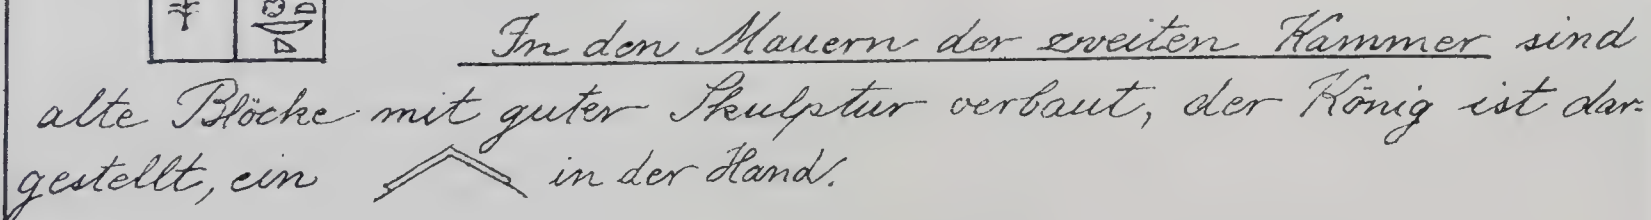 In den Mauern der zweiten Kammer sind
alte Blöcke mit guter Skulptur verbaut, der König ist dar=
gestellt, ein in der Hand.